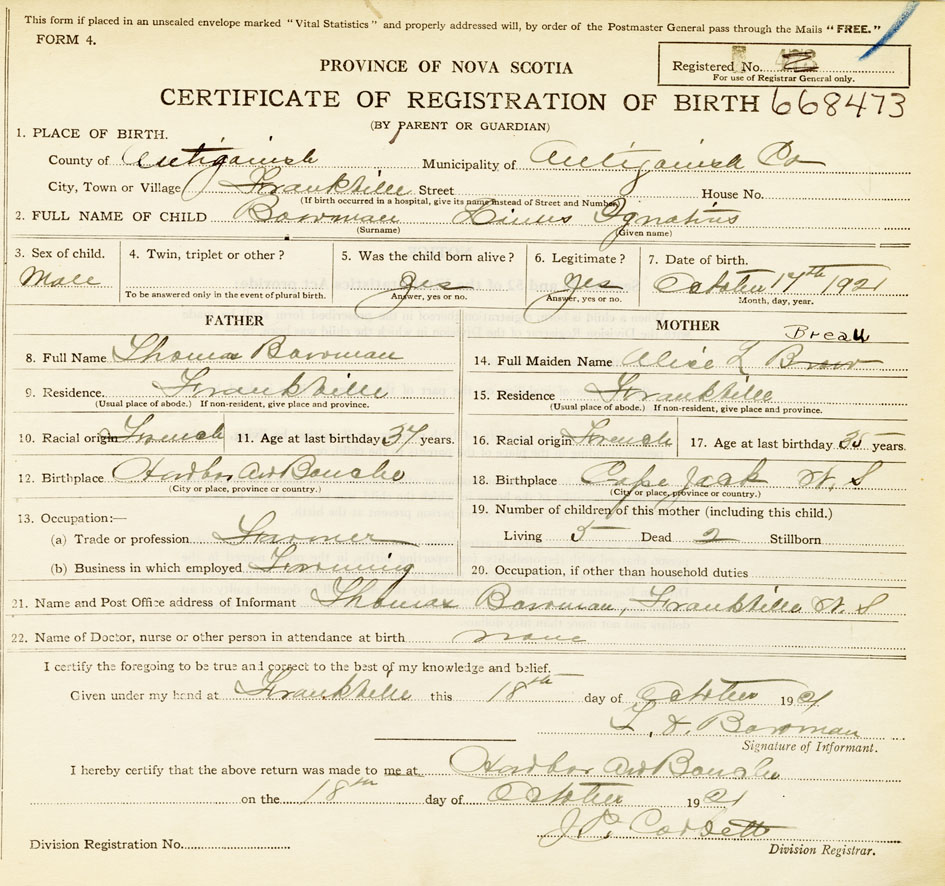 This form if placed in an unsealed envelope marked "Vital Statistics" and properly addressed will, by order of the Postmaster General pass through the Mails "FREE."
FORM 4.
Registered No.
For use of Registrar General only.
PROVINCE OF NOVA SCOTIA
CERTIFICATE OF REGISTRATION OF BIRTH 668473
(BY PARENT OR GUARDIAN)
1. PLACE OF BIRTH.
County of Antigonish Municipality of Antigonish Co
City, Town or Village Frankville Street House No.
(If birth occurred in a hospital, give its name instead of Street and Number)
2. FULL NAME OF CHILD Bowman Linus Ignatius
(Surname) (Given name)
3. Sex of child. Male
4. Twin, triplet or other?
To be answered only in the event of plural birth.
5. Was the child born alive? Yes
Answer, yes or no.
6. Legitimate? Yes
Answer, yes or no.
7. Date of birth. October 17th 1921
Month, day, year.
FATHER
8. Full Name Thomas Bowman
9. Residence. Frankville
(Usual place of abode.) If non-resident, give place and province.
10. Racial origin French
11. Age at last birthday 37 years.
12. Birthplace Harbor Au Bouche
(City or place, province or country.)
13. Occupation:—
(a) Trade or profession Farmer
(b) Business in which employed Farming
MOTHER
Breau
14. Full Maiden Name Alice L Brow
15. Residence Frankville
(Usual place of abode.) If non-resident, give place and province.
16. Racial origin French
17. Age at last birthday 35 years.
18. Birthplace Cape Jack N. S
(City or place, province or country.)
19. Number of children of this mother (including this child.)
Living 5 Dead 2 Stillborn
20. Occupation, if other than household duties
21. Name and Post Office address of Informant Thomas Bowman, Frankville N. S
22. Name of Doctor, nurse or other person in attendance at birth none
I certify the foregoing to be true and correct to the best of my knowledge and belief.
Given under my hand at Frankville this 18th day of October 1921
Bowman
Signature of Informant.
I hereby certify that the above return was made to me at Harbor Au Bouche
on the 18th day of October 1921
J. P. Corbett
Division Registration No.
Division Registrar.